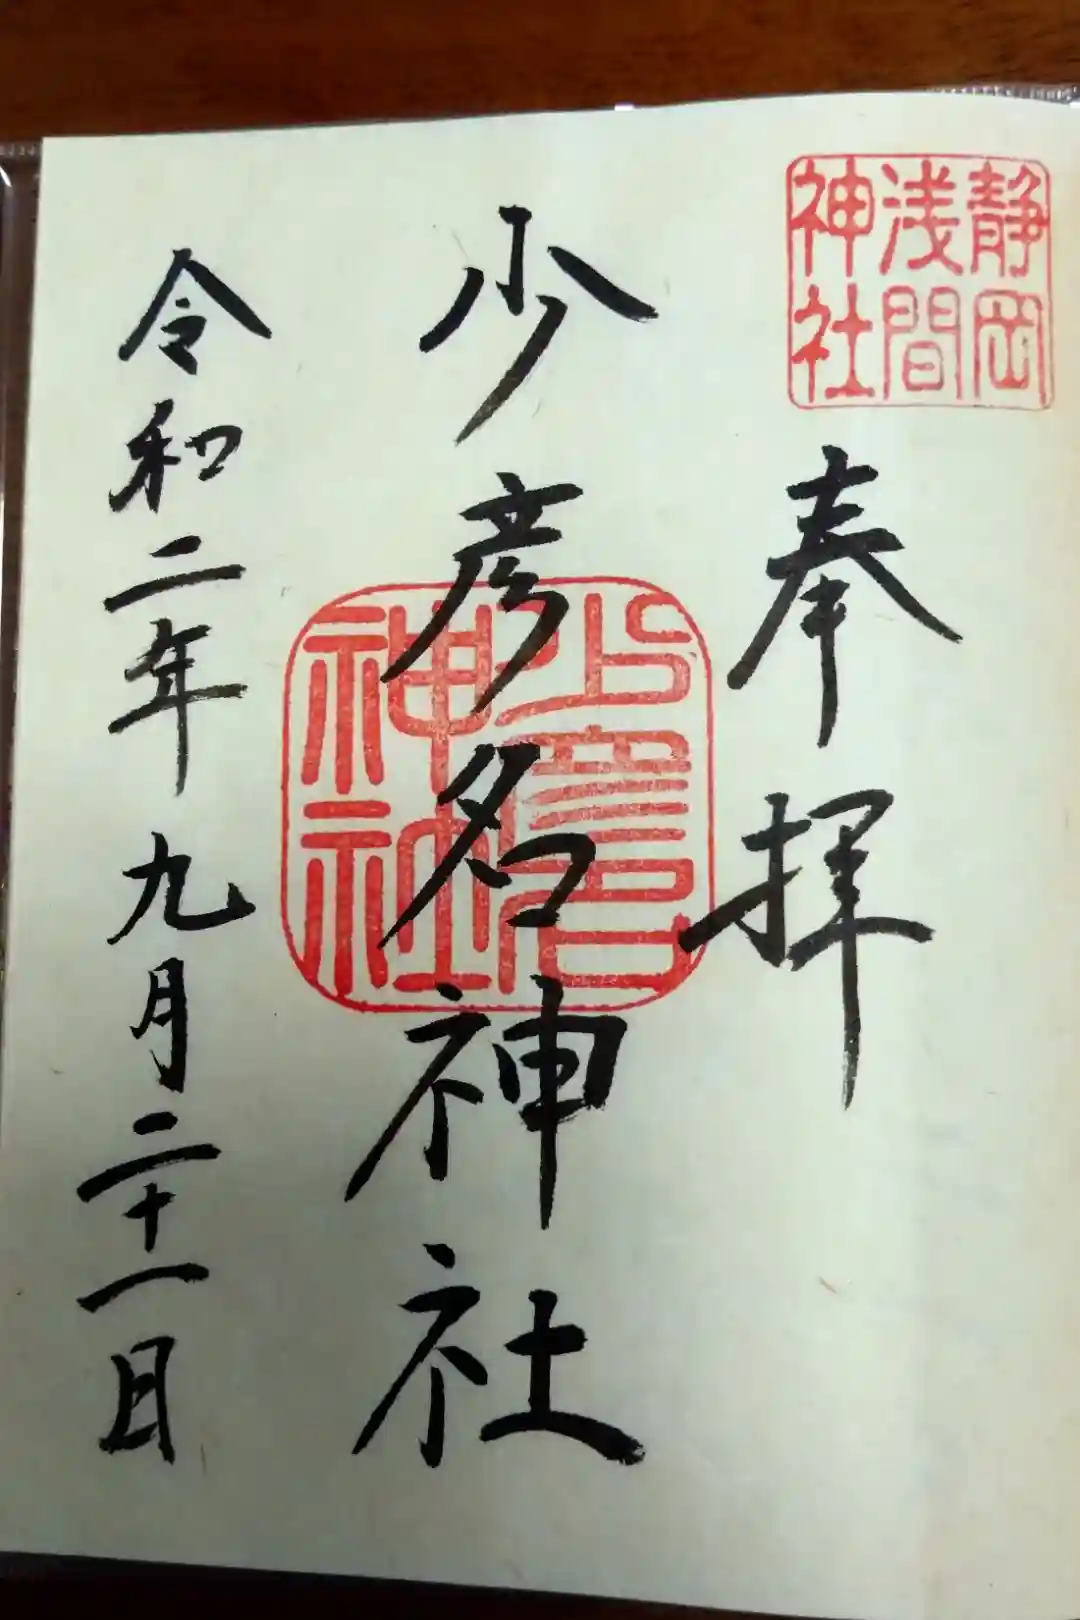 静岡
浅間
神社
奉拝
少彦名神社
少彦名
神社
令和二年九月二十一日